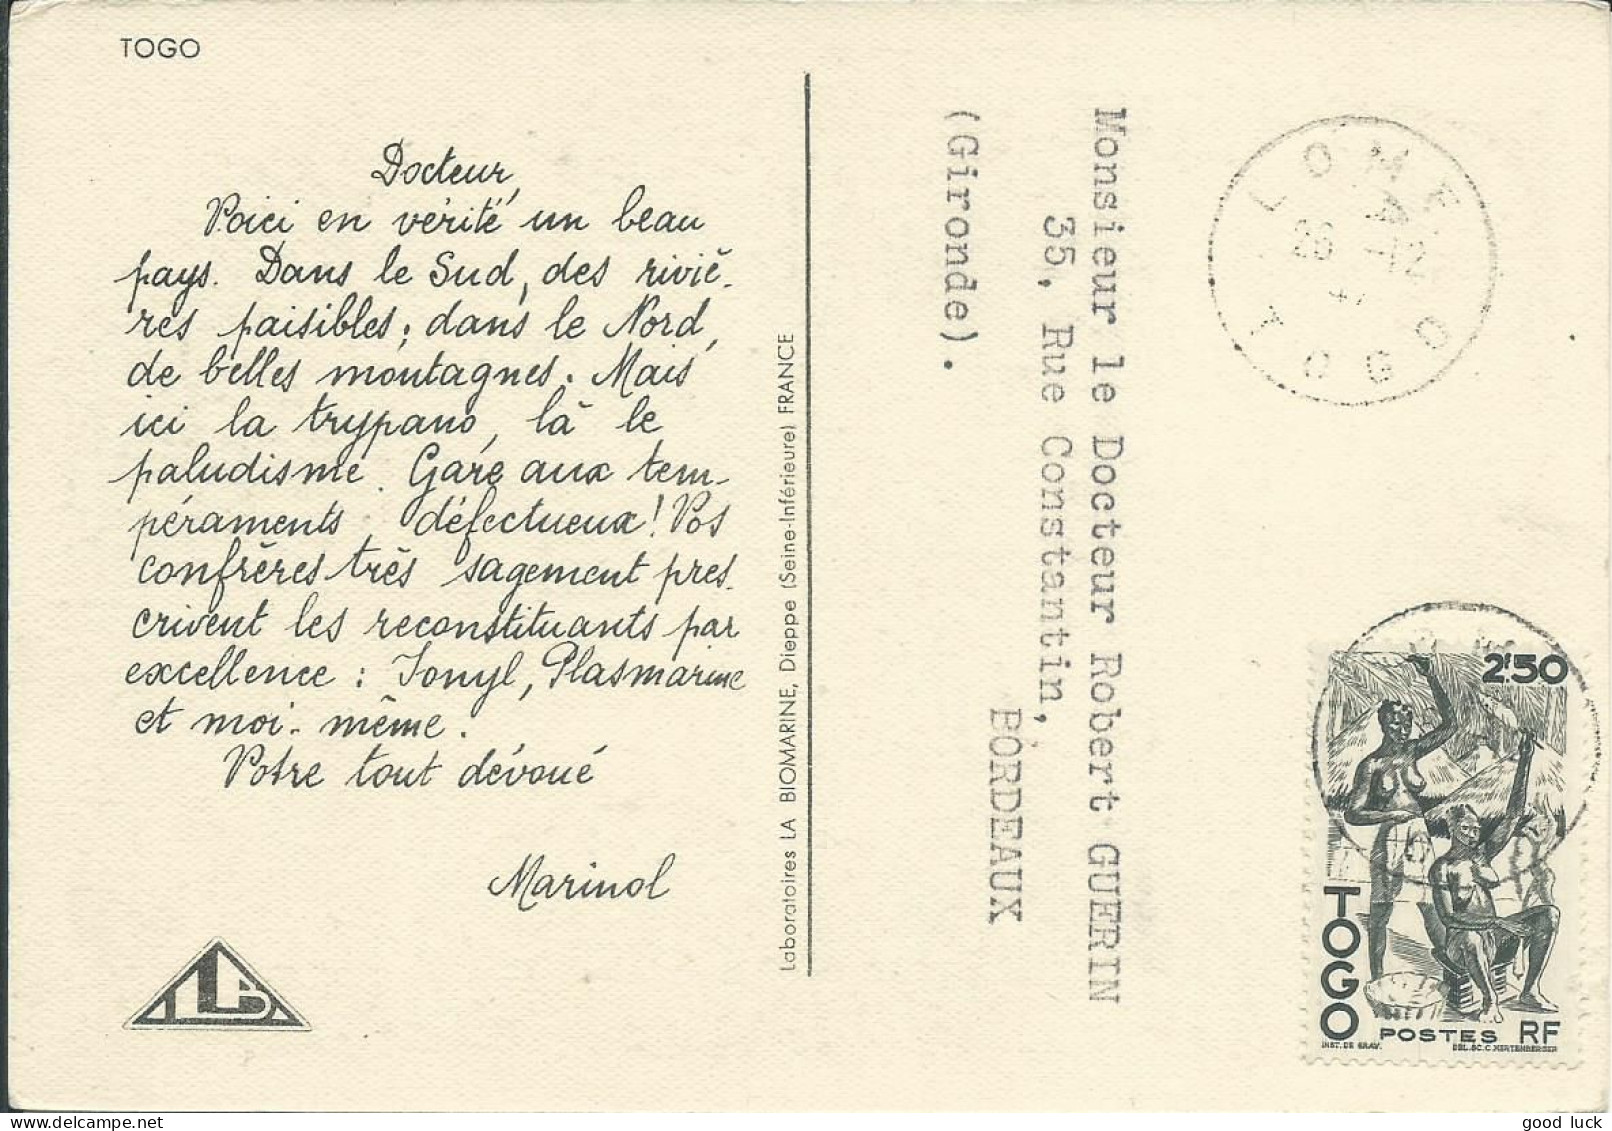 TOGO
Docteur,
Voici en vérité un beau
pays. Dans le Sud, des riviè-
res paisibles; dans le Nord,
de belles montagnes. Mais
ici la trypano, là le
paludisme. Gare aux tem-
péraments défectueux! Vos
confrères très sagement pres-
crivent les reconstituants par
excellence : Ionyl, Plasmarine
et moi-même.
Votre tout dévoué
Marinol
Laboratoires LA BIOMARINE, Dieppe (Seine-Inférieure) FRANCE
Monsieur le Docteur Robert GUERIN
35, Rue Constantin,
BORDEAUX
(Gironde).
LOME
26 -12
TOGO
2F50
TOGO
POSTES RF
INST. DE GRAV. DEL. SC. C. HERTENBERGER
good luck